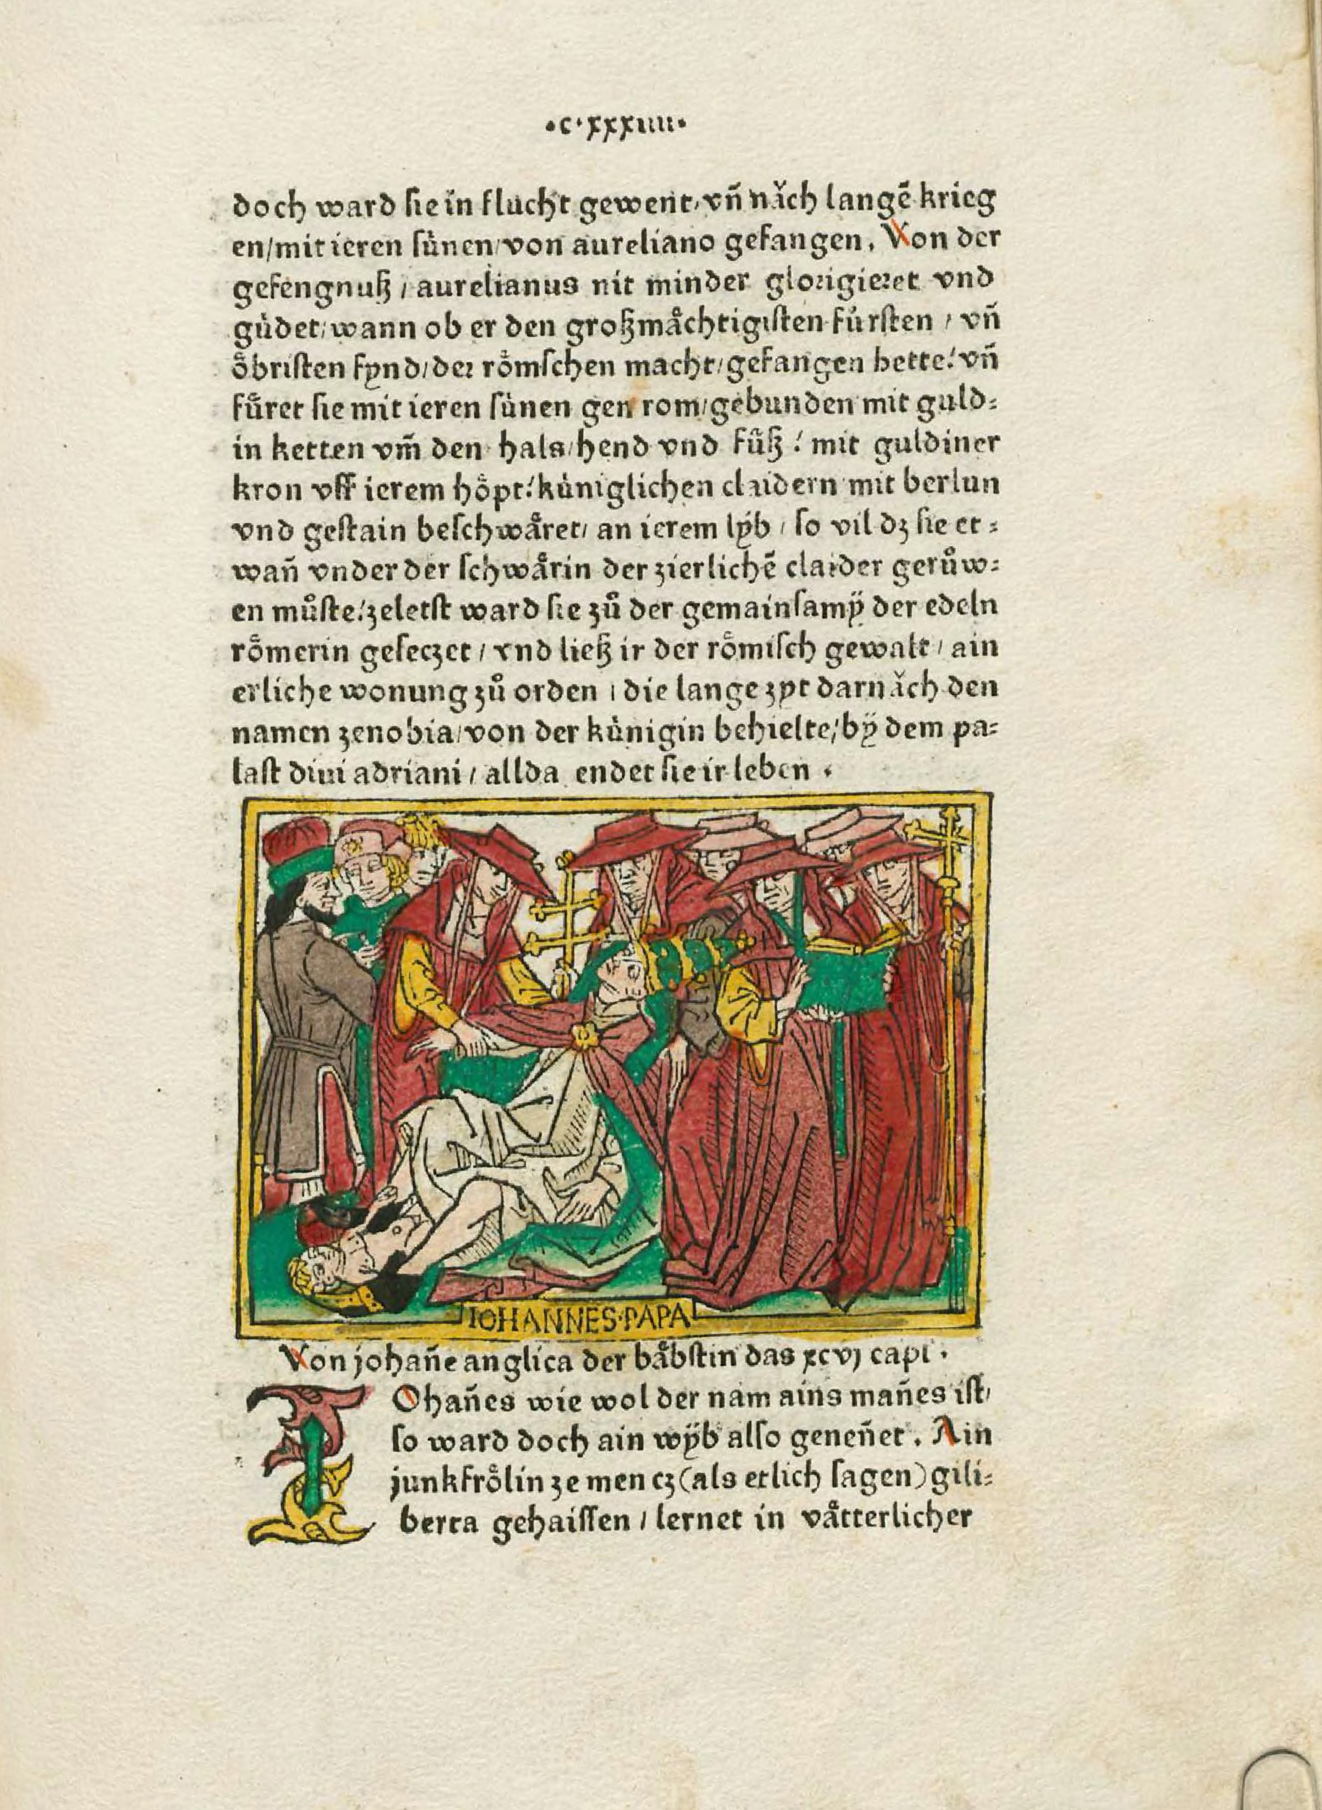 ·c·xxxiiii·
doch ward sie in flucht gewent/ vñ năch langē krieg
en/mit ieren sünen/von aureliano gefangen. Von der
gefengnuß / aurelianus nit minder glorigieret vnd
güdet/ wann ob er den großmåchtigisten fürsten / vñ
öbristen fynd/der römschen macht/gefangen hette! vñ
füret sie mit ieren sünen gen rom/gebunden mit guld⸗
in ketten vm̄ den hals/hend vnd füß! mit guldiner
kron vff ierem höpt! küniglichen claidern mit berlun
vnd gestain beschwåret/ an ierem lÿb / so vil dz sie et⸗
wañ vnder der schwårin der zierlichē claider gerůw⸗
en můste! zeletst ward sie zů der gemainsamÿ der edeln
römerin geseczet / vnd ließ ir der römisch gewalt / ain
erliche wonung zů orden / die lange zyt darnăch den
namen zenobia/von der künigin behielte/bÿ dem pa⸗
last diui adriani / allda endet sie ir leben .
IOHANNES·PAPA
Von johañe anglica der båbstin das xcvj capi .
IOhañes wie wol der nam ains mañes ist/
so ward doch ain wÿb also geneñet . Ain
junkfrölin ze mencz(als etlich sagen)gili⸗
berta gehaissen / lernet in våtterlicher